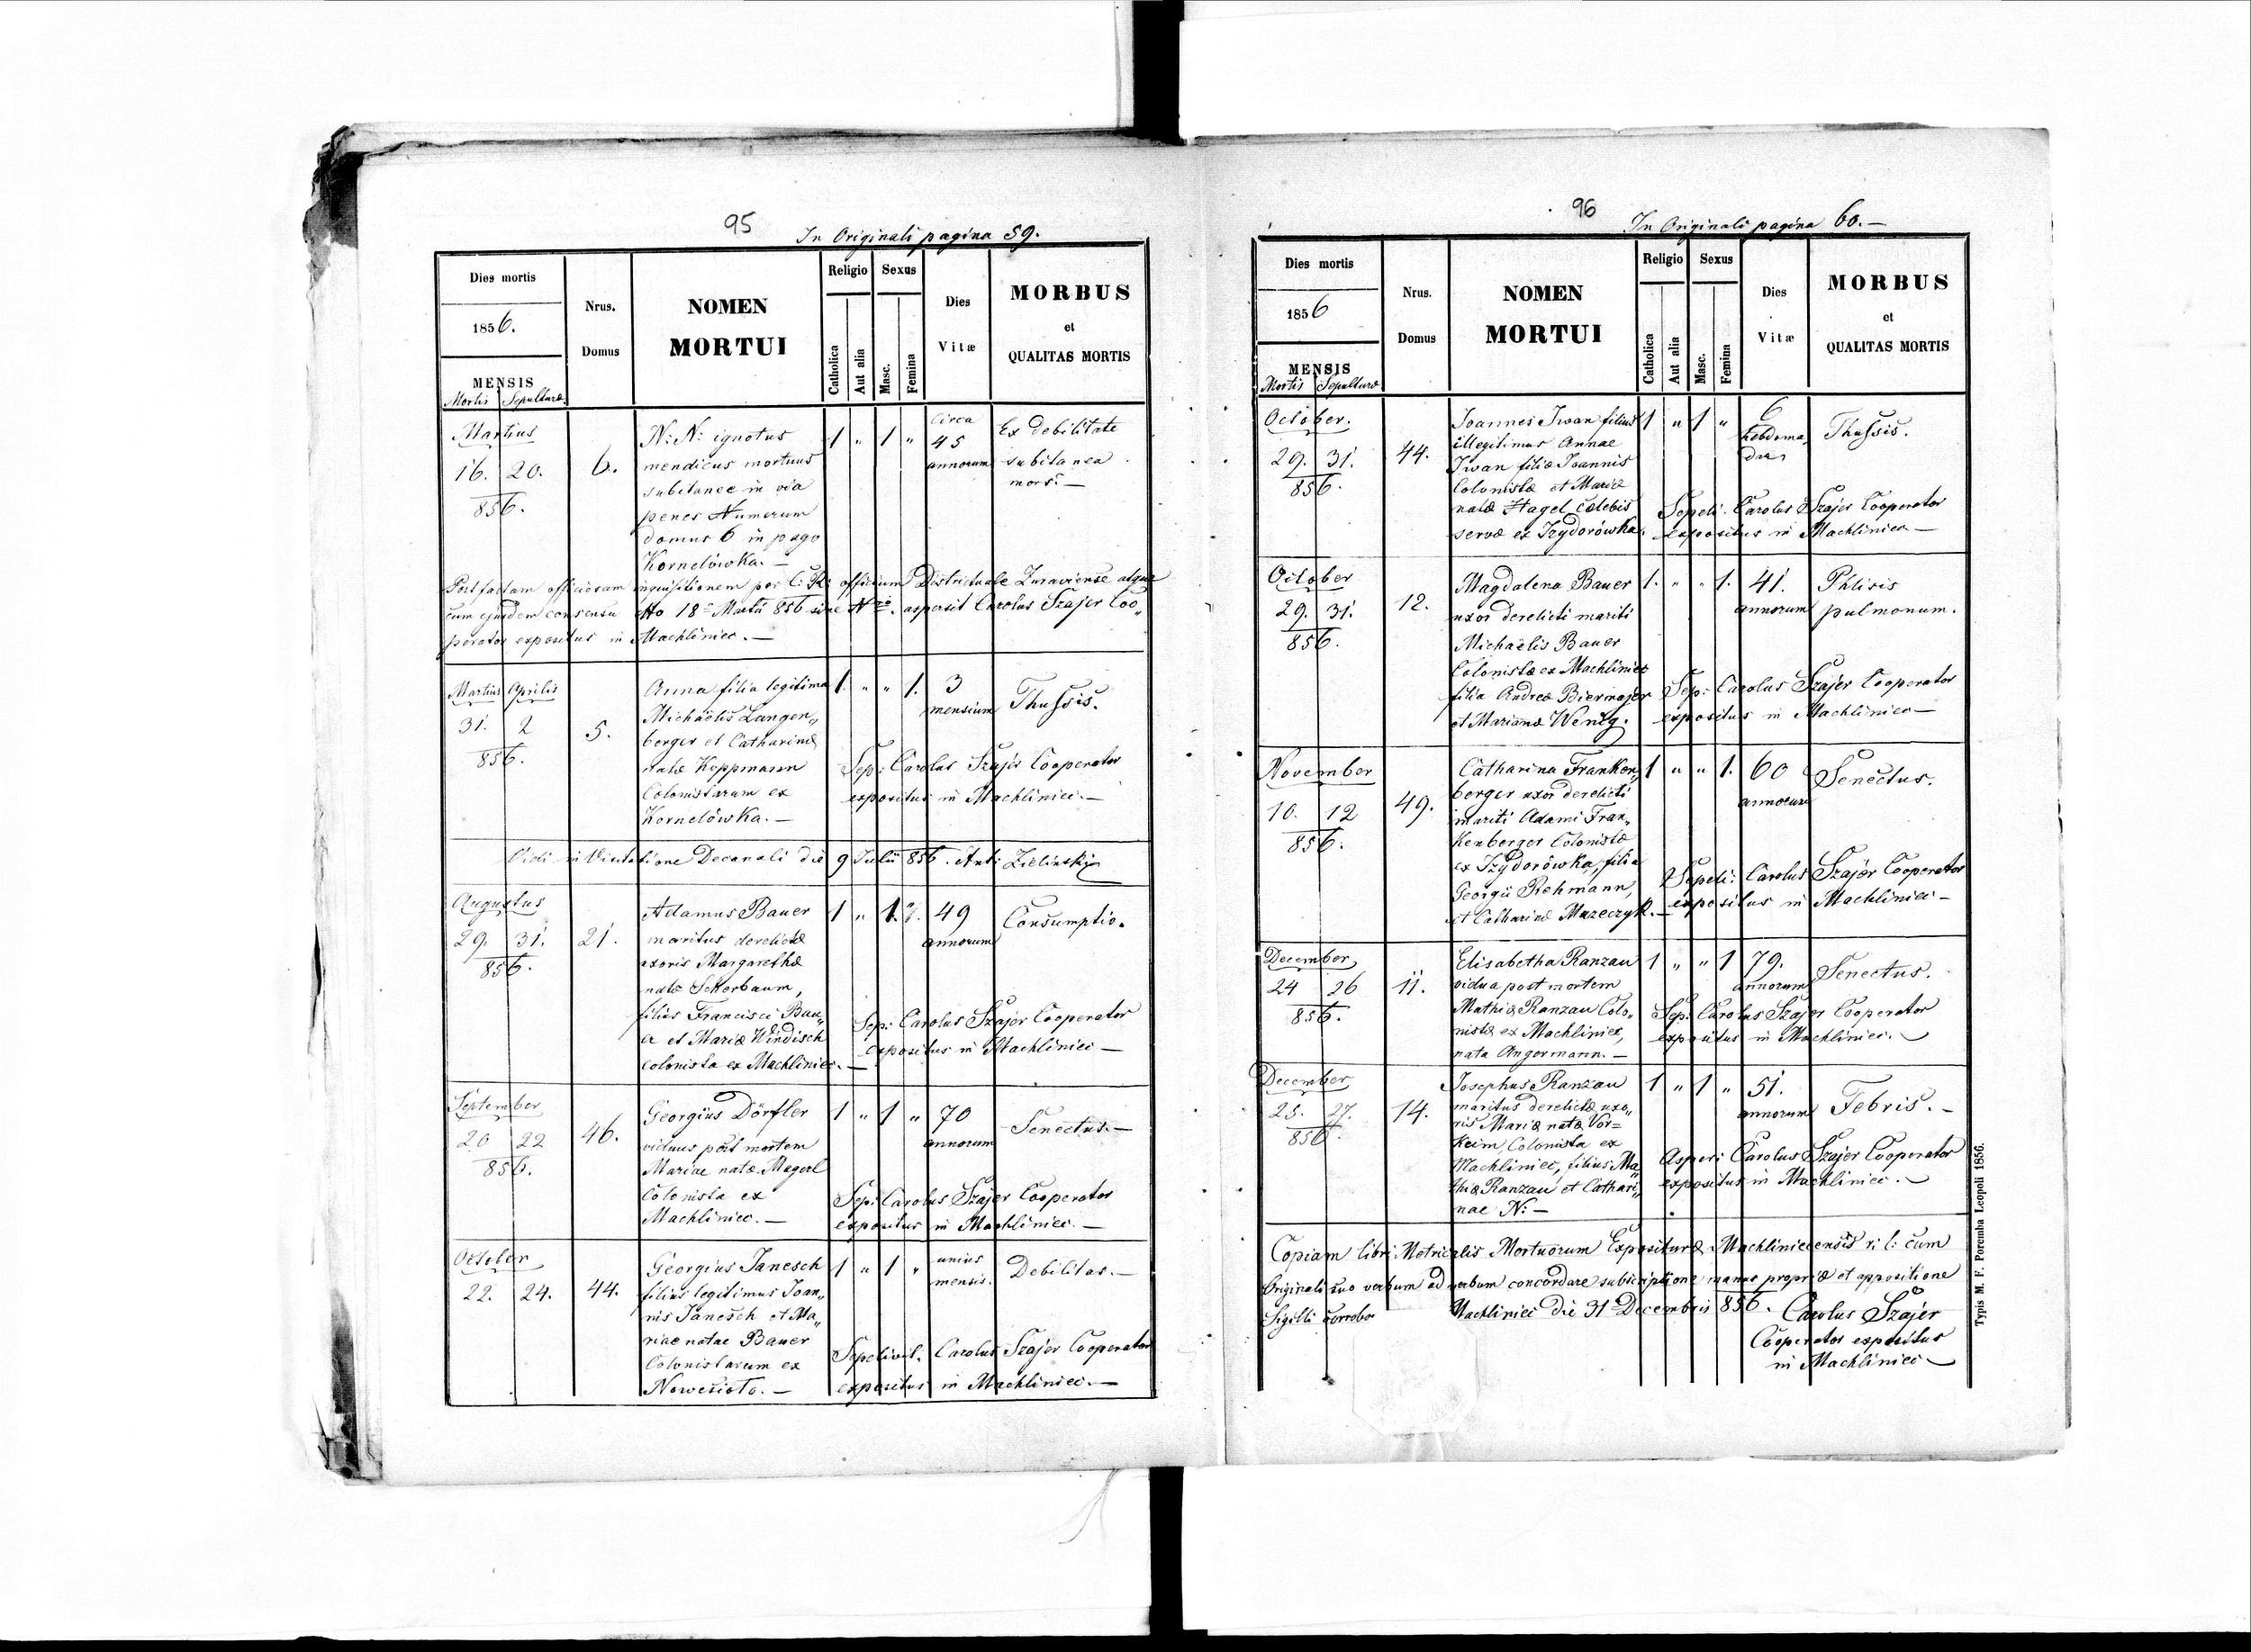 95
In Originali pagina 59.
Dies mortis
1856.
MENSIS
Mortis Sepulturæ
Nrus.
Domus
NOMEN
MORTUI
Religio
Catholica
Aut alia
Sexus
Masc.
Femina
Dies
Vitæ
MORBUS
et
QUALITAS MORTIS
Martius
16. 20.
856.
6.
N: N: ignotus
mendicus mortuus
subitanee in via
penes Numerum
domus 6 in pago
Kornelówka. —
1 " 1 "
Circa
45
annorum
Ex debilitate
subitanea
mors. —
Post factam officiosam inquisitionem per C: R: officium Districtuale Zuraviense atque
cum ejusdem consensu dto 18 Martii 856 sine Nro. aspersit Carolus Szajer Coo„
perator expositus in Machliniec. —
Martius Aprilis
31. 2
856.
5.
Anna filia legitima
Michaëlis Langen„
berger et Catharinæ
natæ Koppmann
Colonistarum ex
Kornelówka. —
1. " " 1.
3
mensium
Thussis.
Sep: Carolus Szajer Cooperator
expositus in Machliniec. —
Vidi in Visitatione Decanali die 9 Julii 856. Ant: Zielinski
Augustus
29. 31.
856.
21.
Adamus Bauer
maritus derelictæ
uxoris Margarethæ
natæ Scherbaum,
filius Francisci Bau„
er et Mariæ Windisch
colonista ex Machliniec. —
1 " 1.
49
annorum
Consumptio.
Sep: Carolus Szajer Cooperator
expositus in Machliniec —
September
20 22
856.
46.
Georgius Dörfler
viduus post mortem
Mariae natæ Magerl
Colonista ex
Machliniec. —
1 " 1 "
70
annorum
Senectus. —
Sep: Carolus Szajer Cooperator
expositus in Machliniec. —
October
22. 24.
44.
Georgius Janesch
filius legitimus Joan„
nis Janesch et Ma„
riae natae Bauer
Colonistarum ex
Nowesioło. —
1 " 1 "
unius
mensis.
Debilitas. —
Sepelivit. Carolus Szajer Cooperator
expositus in Machliniec. —
96
In Originali pagina 60. —
Dies mortis
1856
MENSIS
Mortis Sepulturæ
Nrus.
Domus
NOMEN
MORTUI
Religio
Catholica
Aut alia
Sexus
Masc.
Femina
Dies
Vitæ
MORBUS
et
QUALITAS MORTIS
October.
29. 31.
856.
44.
Joannes Iwan filius
illegitimus Annae
Iwan filiæ Joannis
Colonistæ et Mariæ
natæ Hagel cælebis
servæ ex Izydorówka.
1 " 1 "
6
hebdoma„
das
Thussis.
Sepeli: Carolus Szajer Cooperator
expositus in Machliniec —
October
29. 31.
856.
12.
Magdalena Bauer
uxor derelicti mariti
Michaëlis Bauer
Colonistæ ex Machliniec
filia Andreæ Biermajer
et Mariannæ Wenig.
1. " " 1.
41.
annorum
Phtisis
pulmonum.
Sep: Carolus Szajer Cooperator
expositus in Machliniec —
November
10. 12
856.
49.
Catharina Franken„
berger uxor derelicti
mariti Adami Fran„
kenberger Colonistæ
ex Izydorówka, filia
Georgii Rehmann,
et Catharinæ Mazeczyk. —
1 " " 1.
60
annorum
Senectus.
Sepeli: Carolus Szajer Cooperator
expositus in Machliniec —
December
24 26
856.
11.
Elisabetha Ranzau
vidua post mortem
Mathiæ Ranzau Colo„
nistæ ex Machliniec,
nata Angermann. —
1 " " 1
79.
annorum
Senectus.
Sep: Carolus Szajer Cooperator
expositus in Machliniec. —
December
25. 27.
856.
14.
Josephus Ranzau
maritus derelictæ uxo„
ris Mariæ natæ Vor=
keim, Colonista ex
Machliniec, filius Ma„
thiæ Ranzau et Cathari„
nae N: —
1 " 1 "
51.
annorum
Febris. —
Asper: Carolus Szajer Cooperator
expositus in Machliniec. —
Copiam libri Metricalis Mortuorum Expositura Machliniecensis r: l: cum
Originali suo verbum ad verbum concordare subscriptione manus propriæ et appositione
Sigilli corrobor
Machliniec die 31 Decembris 856.
Carolus Szajer
Cooperator expositus
in Machliniec —
Typis M. F. Poremba Leopoli 1856.